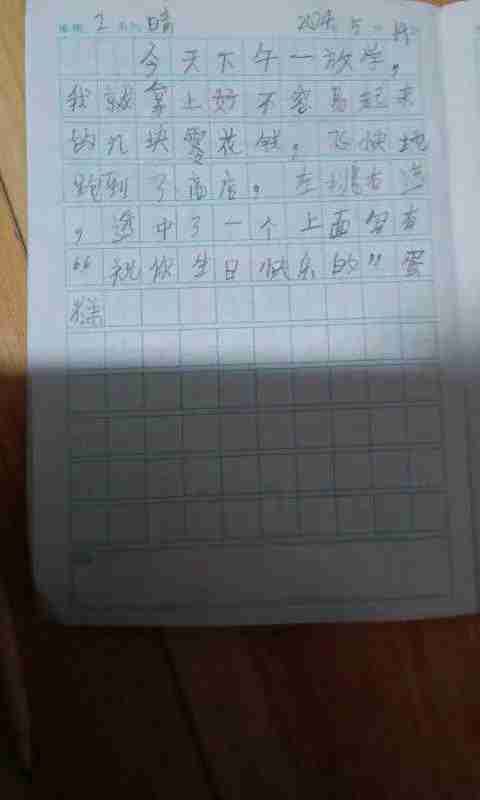 星期 2 天气 晴
今天下午一放学，
我就拿上好不容易起来
的几块零花钱，飞快地
跑到了商店，左挑右选
，选中了一个上面写有
“祝你生日快乐的”蛋
糕